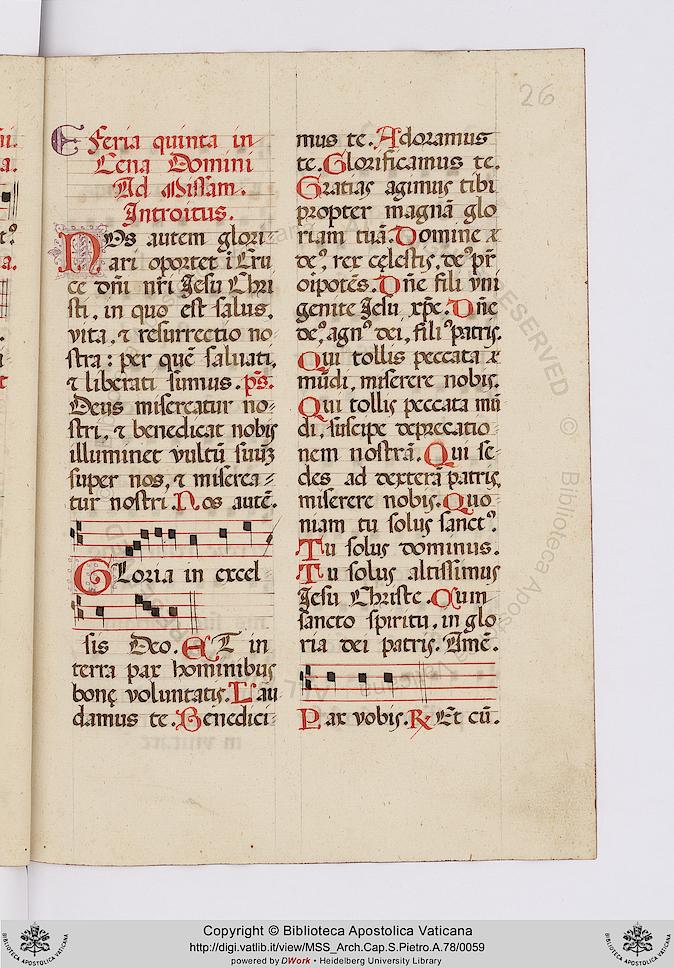 26
Feria quinta in
Cena Domini
Ad Missam.
Introitus.
NOs autem glori-
ari oportet ĩ Cru
ce dñi nr̃i Jesu Chri
sti, in quo est salus,
vita, ⁊ resurrectio no-
stra: per quẽ saluati,
⁊ liberati sumus. ps̃.
Deus misereatur no-
stri, ⁊ benedicat nobis
illuminet vultũ suũ
super nos, ⁊ miserea-
tur nostri. Nos autẽ.
GLoria in excel
sis Deo. ET in
terra pax hominibus
bonę voluntatis. Lau
damus te. Benedici-
mus te. Adoramus
te. Glorificamus te.
Gratias agimus tibi
propter magnã glo
riam tuã. Domine
de⁹, rex cęlestis, de⁹ pr̃
oĩpotẽs. Dñe fili vni
genite Jesu xp̃e. Dñe
de⁹, agn⁹ dei, fili⁹ patris.
Qui tollis peccata
mũdi, miserere nobis.
Qui tollis peccata mũ
di, suscipe deprecatio
nem nostrã. Qui se-
des ad dexterã patris,
miserere nobis. Quo-
niam tu solus sanct⁹.
Tu solus dominus.
Tu solus altissimus
Jesu Christe. Cum
sancto spiritu, in glo
ria dei patris. Amẽ.
Pax vobis. ℟ Et cũ.
Copyright © Biblioteca Apostolica Vaticana
http://digi.vatlib.it/view/MSS_Arch.Cap.S.Pietro.A.78/0059
powered by DWork • Heidelberg University Library